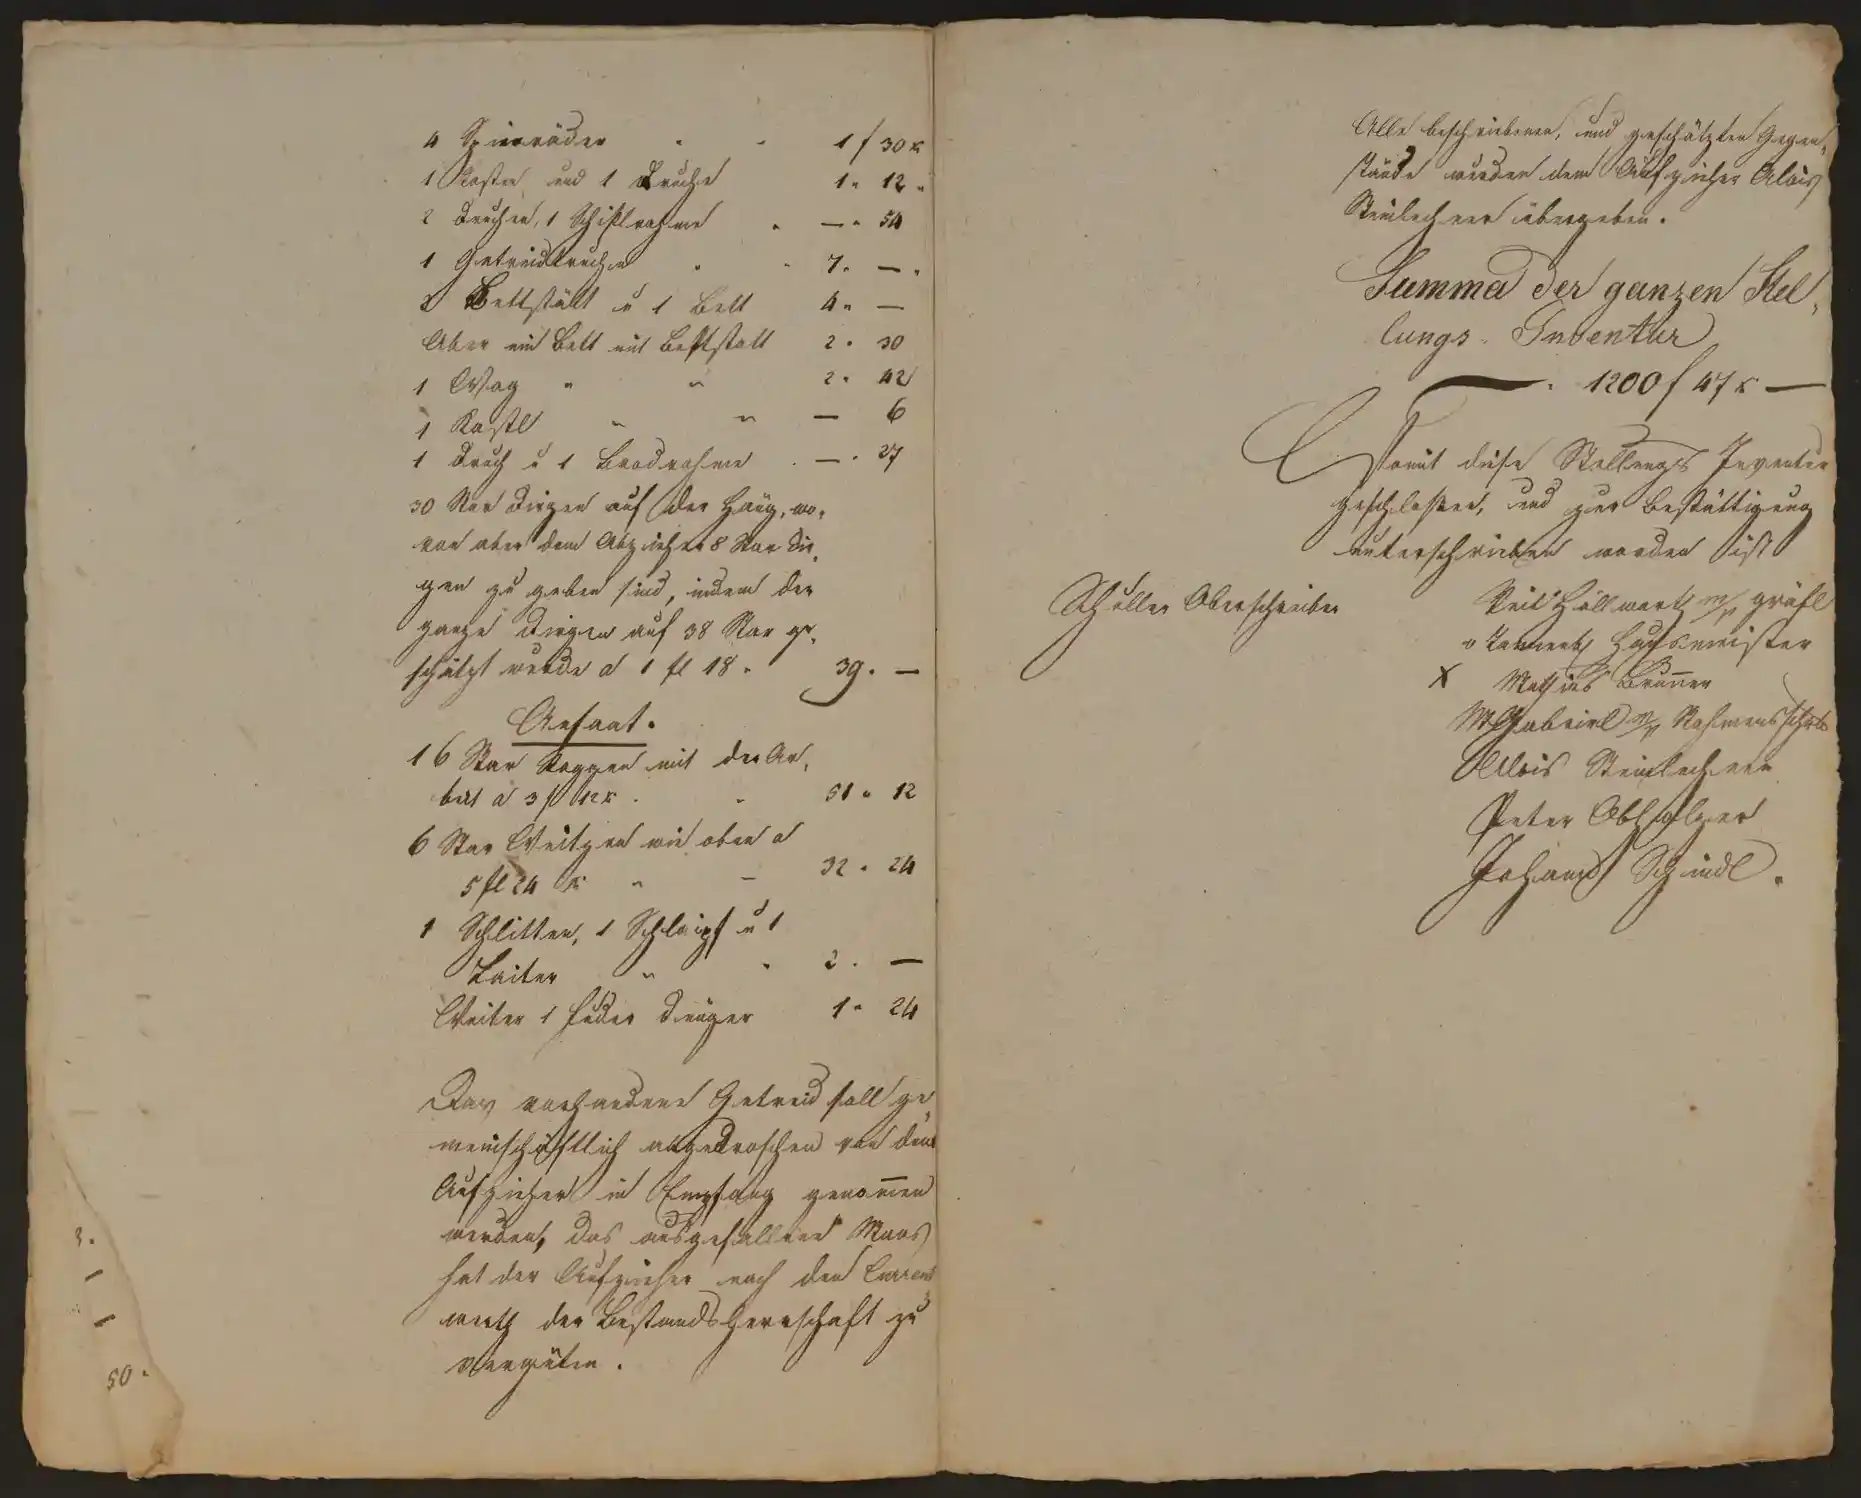 4 Spinräder " " 1 f 30 x
1 Kasten und 1 Truche 1 " 12 "
2 Truchen, 1 Schißlrahme " — " 54
1 Getreidtruche " " 7 " — "
2 Bettstätt u 1 Bett 4 " —
Aber ein Bett mit Bettstatt 2 " 30
1 Wag " " 2 " 42
1 Kastl " " — 6
1 Truch u 1 Brodrahme " — " 27
30 Star auf der wo,
von aber dem Abzieher 8 Star
gen zu geben sind, indem der
ganze auf 38 Star ge,
schätzt wurde a 1 fl 18 " 39 " —
Ansaat.
16 Star Roggen mit der Ar,
beit a 3 f 12 x " " 51 " 12
6 Star Weitzen wie oben a
5 fl 24 x " — 32 " 24
1 Schlitten, 1 Schlaipf u 1
Laiter " " 2 " —
Weiter 1 Fuder Dünger 1 " 24
Das vorhandene Getreid soll ge
meinschäftlich abgedroschen von dem
Aufzieher in Empfang genom̄en
werden, das ausgefallene Maas
hat der Aufzieher nach den Current
werth der Bestandsherrschaft zu
vergüten.
3 "
50 "
Alle beschriebenen, und geschätzten Gegen,
stände wurden dem Aufzieher Alois
Steinlechner übergeben.
Summa der ganzen Stel,
lungs Inventur
— " 1200 f 47 x —
Womit diese Stellungs Inventur
geschloßen, und zur Bestättigung
unterschrieben worden ist
Schöller Oberschreiber
Veit Höllwarth m/p gräfl
v Hausmeister
X Mathias Brun̄er
Gabriel m/p Nahmensschrbr
Alois Steinlechner
Peter Obholzer
Johann Schindl.